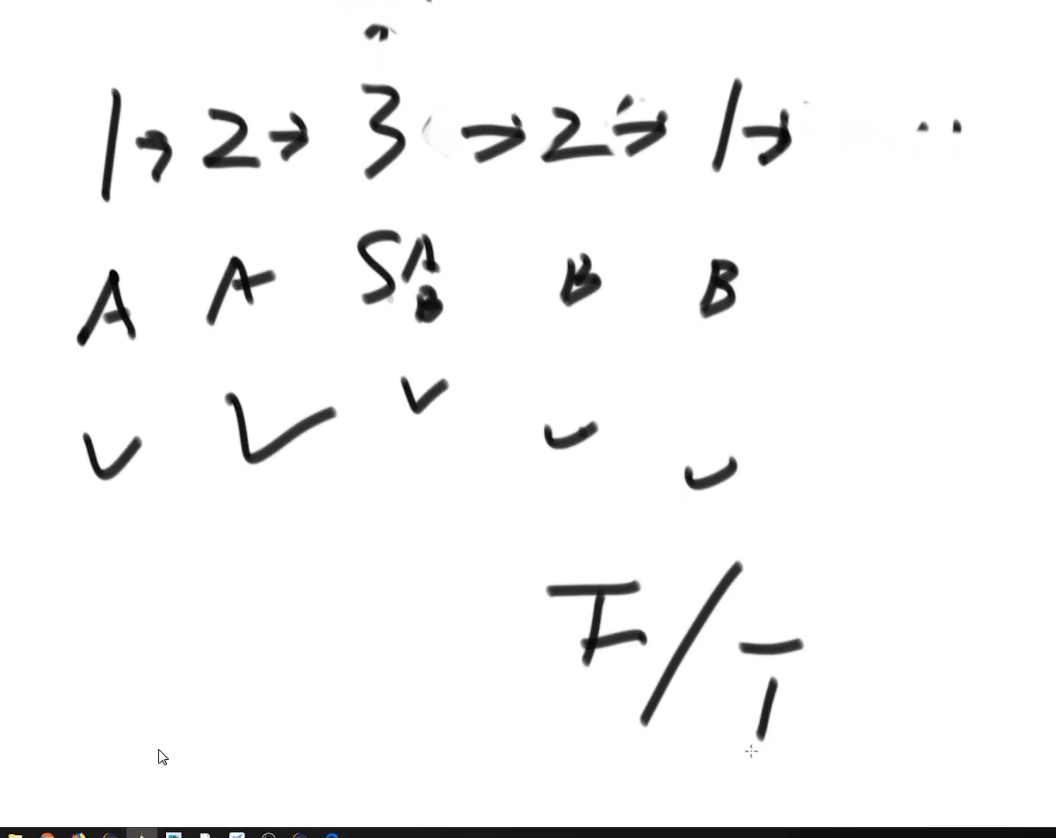 1→ 2→ 3 → 2→ 1→ ..
A A S A B B B
F/T